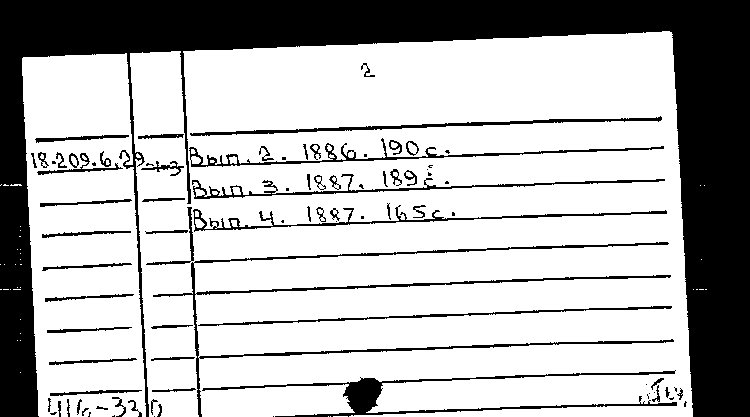 2
18.209.6.29 Вып. 2. 1886. 190 с.
Вып. 3. 1887. 189 с.
Вып. 4. 1887. 165 с.